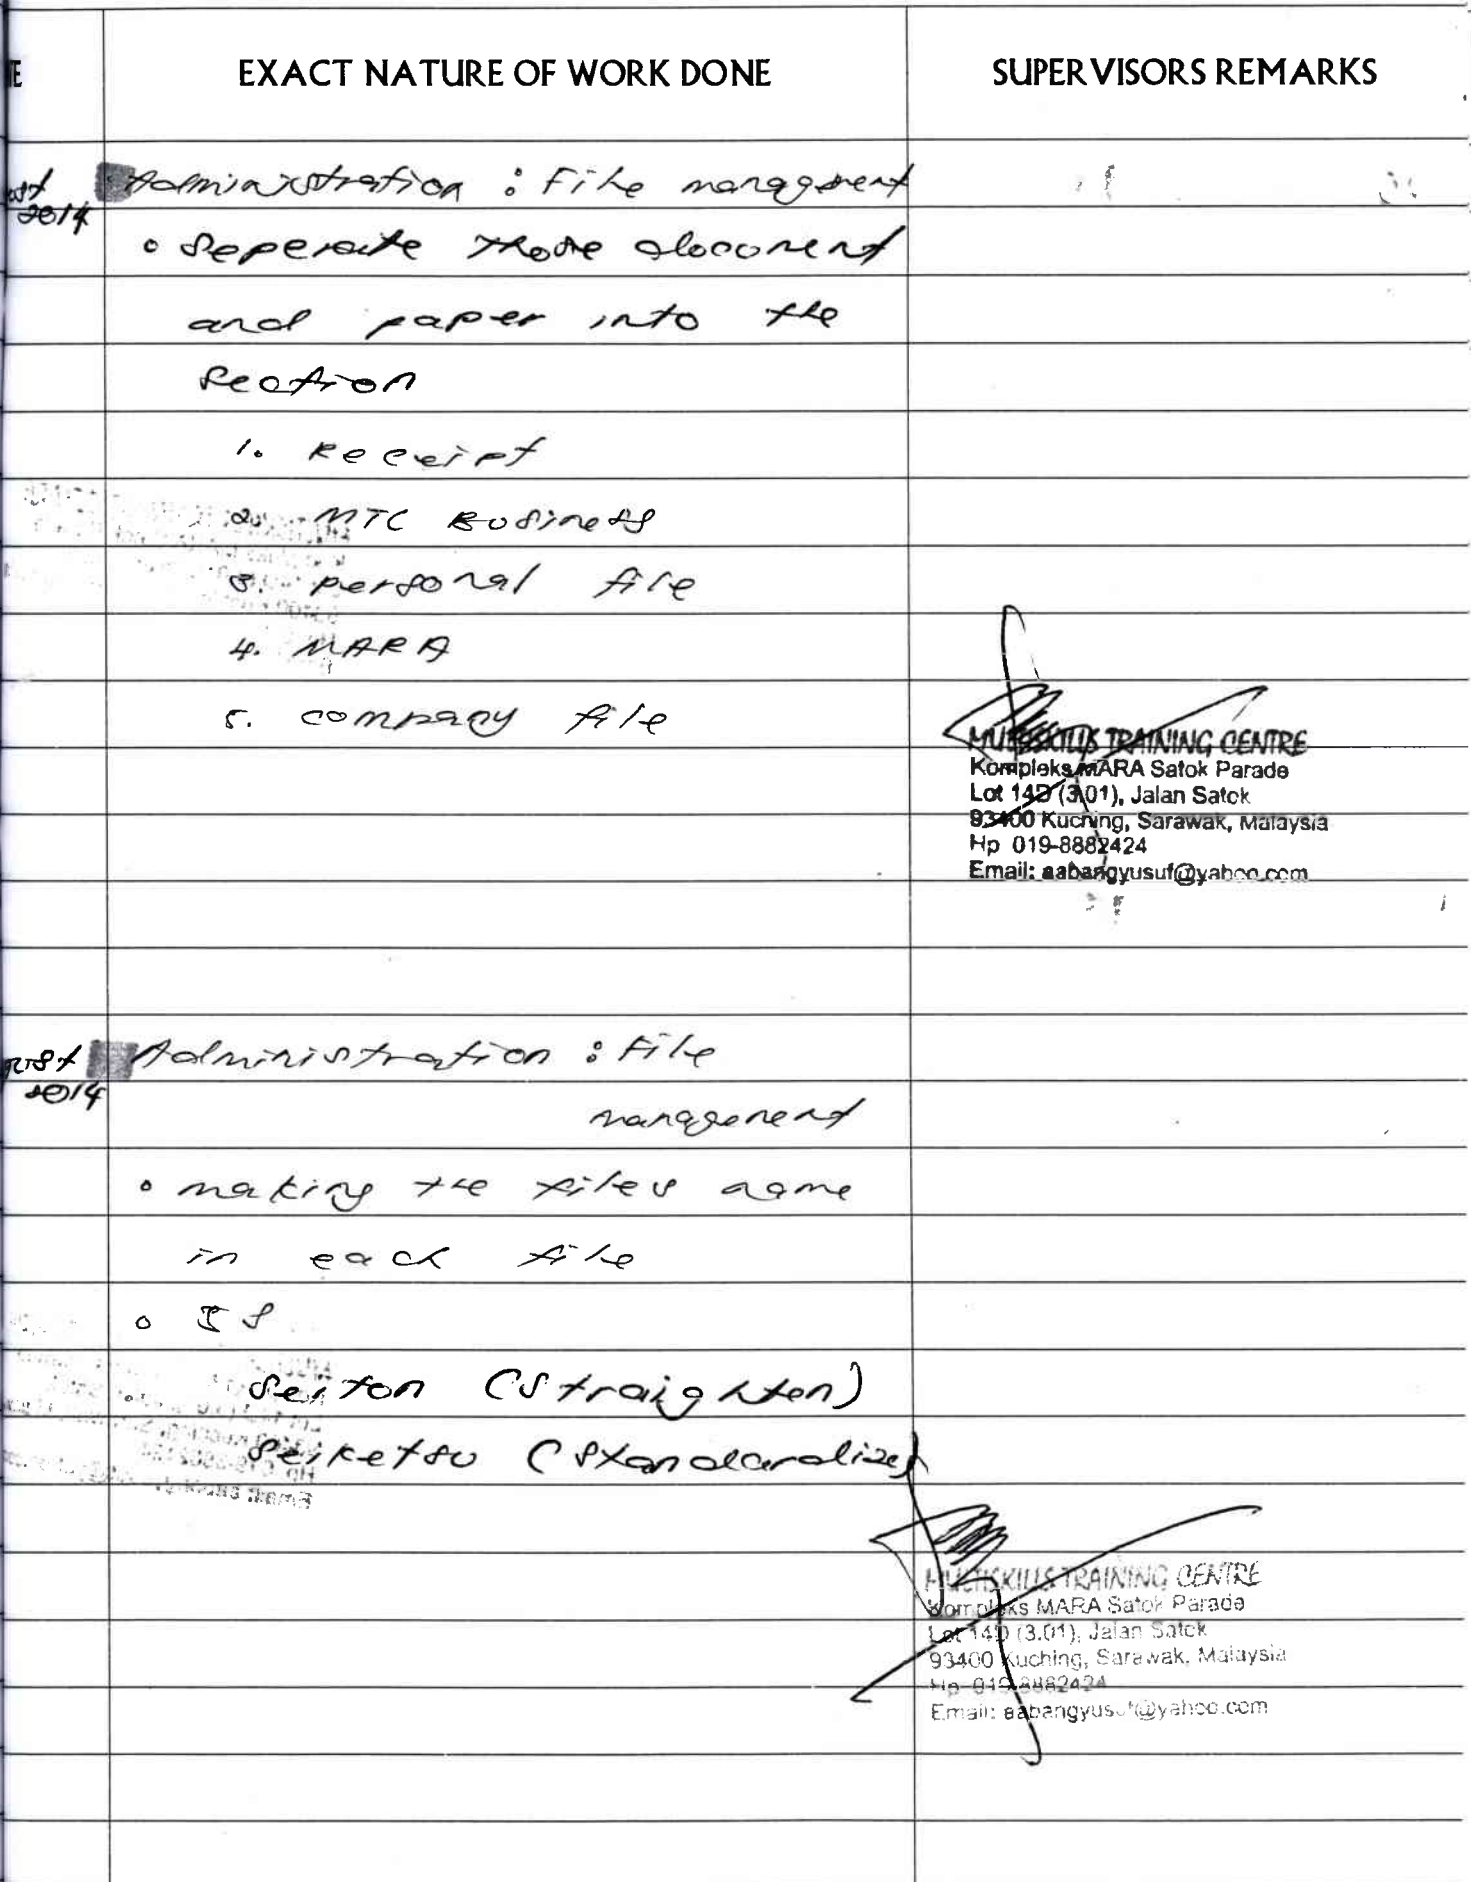 TE EXACT NATURE OF WORK DONE SUPERVISORS REMARKS
ost Administration : File management
2014
• Seperate those document
and paper into the
section
1. Receipt
2. MTC Business
3. personal file
4. MARA
5. company file
MULTISKILLS TRAINING CENTRE
Kompleks MARA Satok Parade
Lot 14D (3.01), Jalan Satok
93400 Kuching, Sarawak, Malaysia
Hp 019-8882424
Email: aabangyusuf@yahoo.com
gust Administration : File
2014
management
• making the files name
in each file
• 5S
Seiton (Straighten)
Seiketsu (Standardize)
MULTISKILLS TRAINING CENTRE
Kompleks MARA Satok Parade
Lot 14D (3.01), Jalan Satok
93400 Kuching, Sarawak, Malaysia
Hp 019-8882424
Email: aabangyusuf@yahoo.com